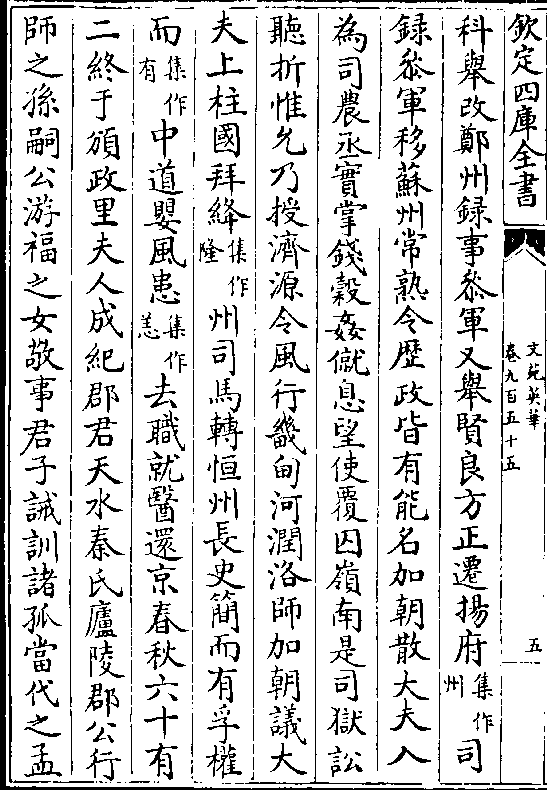 欽定四庫全書
文苑英華
卷九百五十五
五
科舉改鄭州録事叅軍又舉賢良方正遷揚府集作州司
録叅軍移蘇州常熟令歴政皆有能名加朝散大夫入
為司農丞實掌錢穀姦僦息望使覆囚嶺南是司獄訟
聽折惟允乃授濟源令風行畿甸河潤洛師加朝議大
夫上柱國拜絳集作隆州司馬轉恒州長史簡而有孚權
而集作有中道嬰風患集作恙去職就醫還京春秋六十有
二終于頒政里夫人成紀郡君天水秦氏廬陵郡公行
師之孫嗣公游福之女敬事君子誡訓諸孤當代之孟